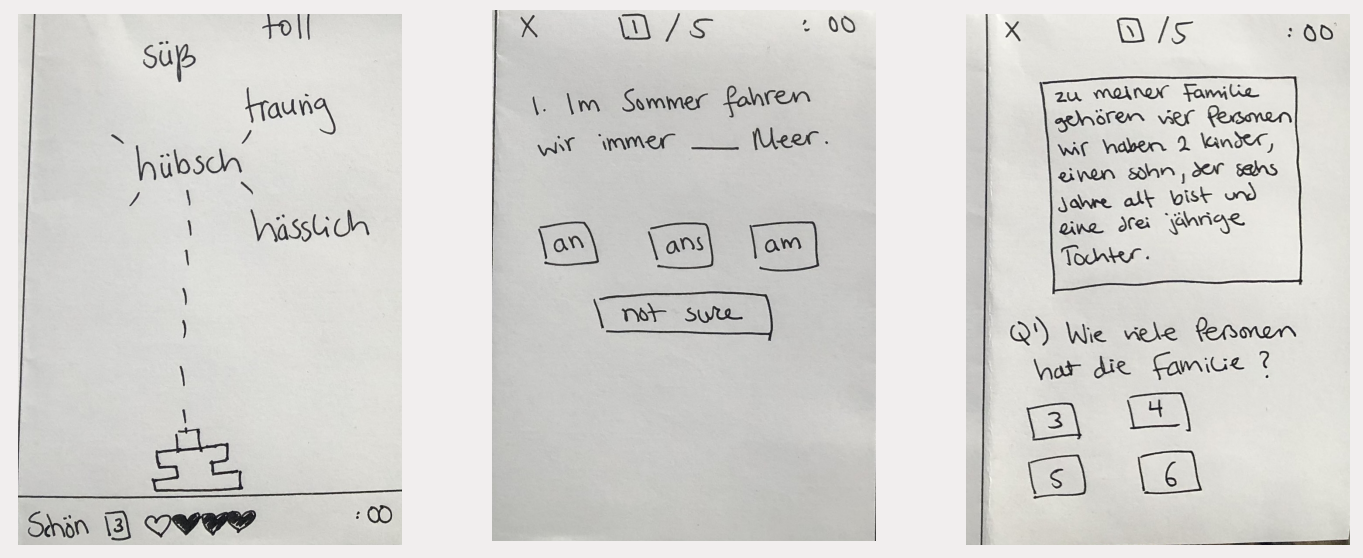 toll
süß
traurig
hübsch
hässlich
Schön 3 :00
X 1 / 5 : 00
1. Im Sommer fahren
wir immer ___ Meer.
an ans am
not sure
X 1 / 5 : 00
zu meiner Familie
gehören vier Personen
wir haben 2 kinder,
einen sohn, der sechs
Jahre alt bist und
eine drei jährige
Tochter.
Q1) Wie viele Personen
hat die Familie ?
3 4
5 6